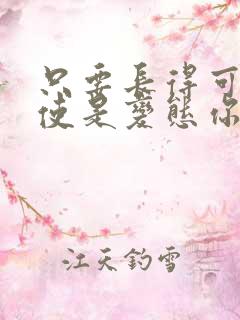 只要長得可
使是變態你
江天釣雪